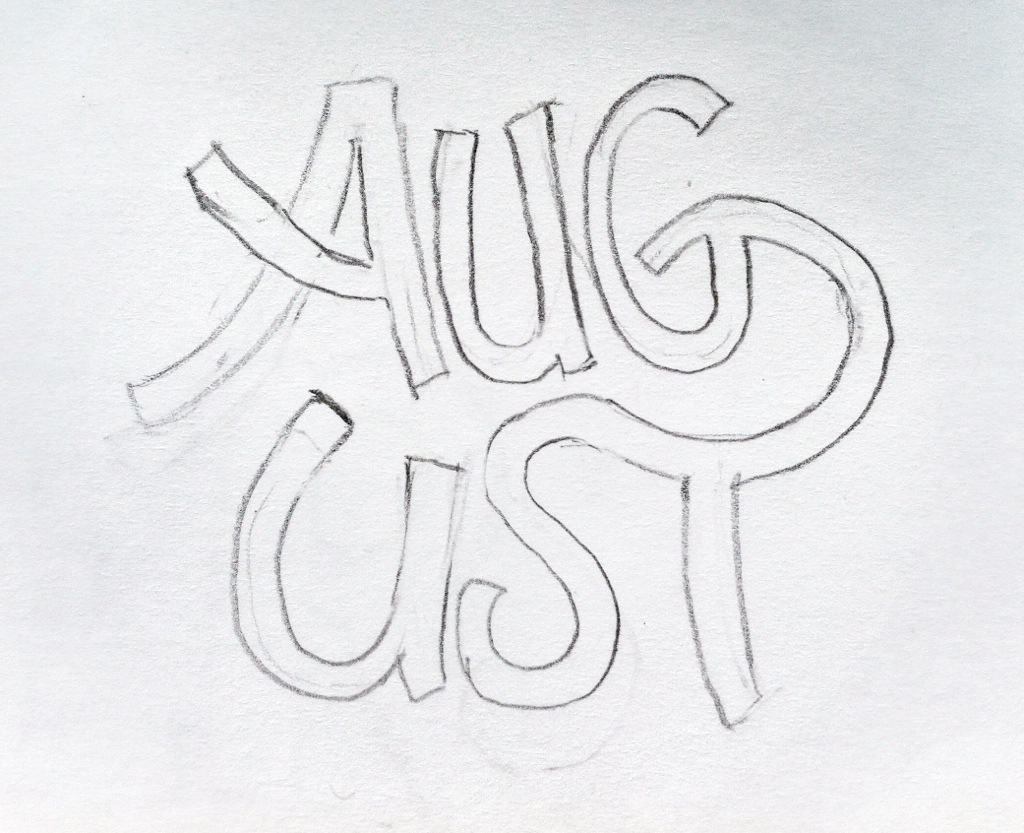 AUG
UST